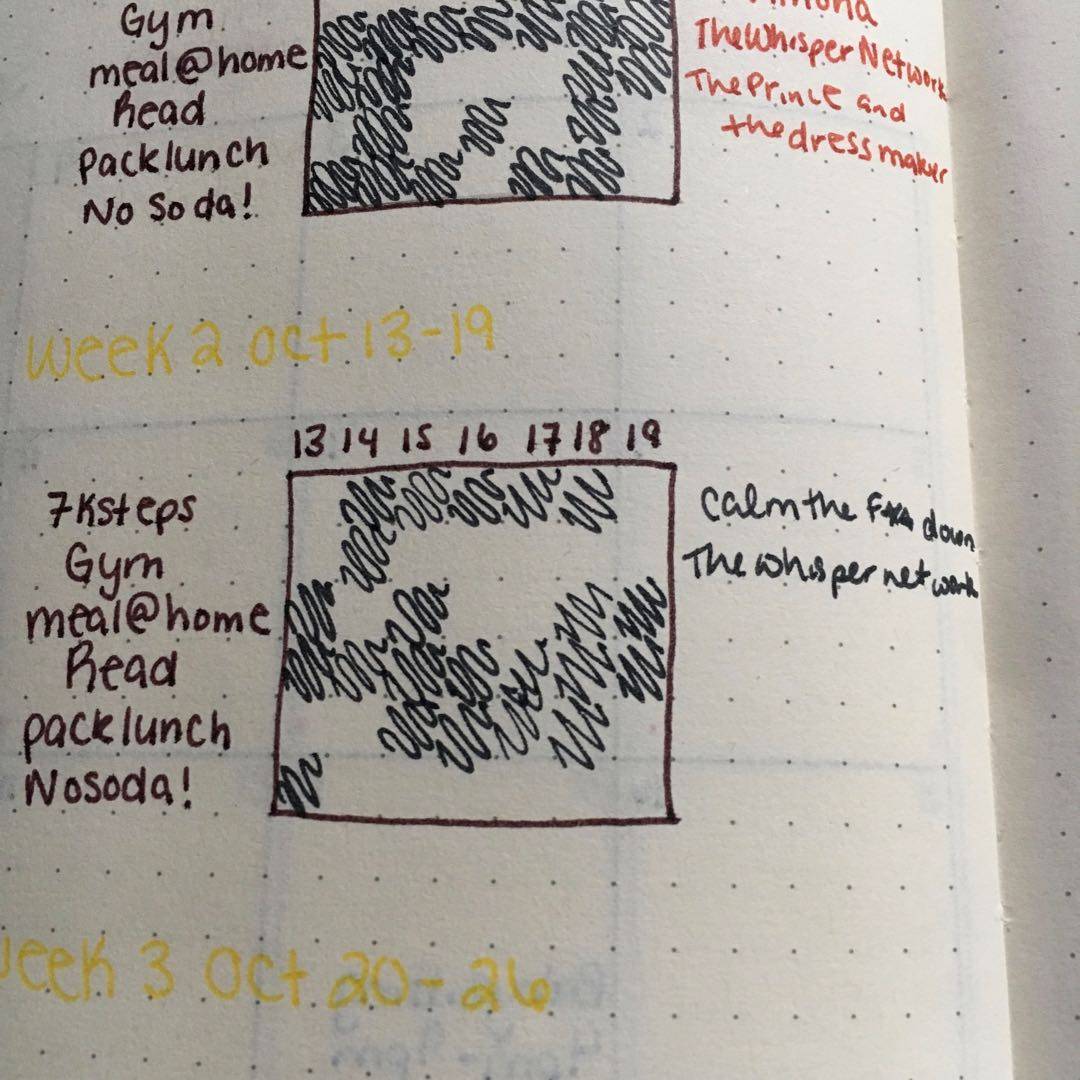 Gym
meal@home
Read
packlunch
No Soda!
The Whisper Network
The Prince and
the dress maker
Week 2 Oct 13-19
13 14 15 16 17 18 19
7Ksteps
Gym
meal@home
Read
packlunch
Nosoda!
Calm the down
The whisper network
Week 3 Oct 20-26